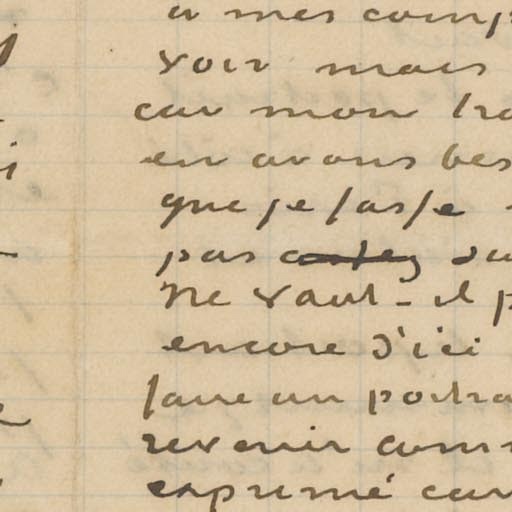 à mes comp
voir mais
car mon tra
en avons bes
que je fasse
pas assez su
Ne vaut-il p
encore d'ici
faire un portra
revenir comm
exprimé car